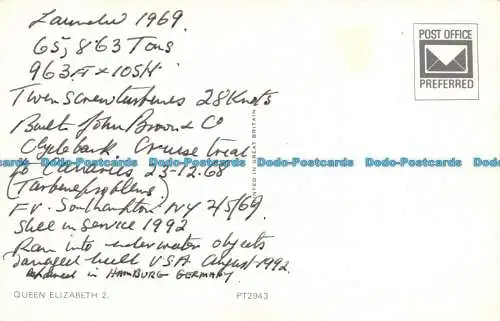 Launched 1969.
65,863 Tons
963 Ft x 105 ft
Twin Screw turbines 28 Knots
Built John Brown & Co
Clydebank Cruise trial
to Canaries 23-12-68
(Turbine problems)
F.V. Southampton NY 2/5/69
Still in service 1992
Ran into underwater objects
damaged hull USA August 1992
repaired in HAMBURG GERMANY.
QUEEN ELIZABETH 2.
PT2943
POST OFFICE
PREFERRED
PRINTED IN GREAT BRITAIN
Dodo-Postcards Dodo-Postcards Dodo-Postcards Dodo-Postcards Dodo-Postcards